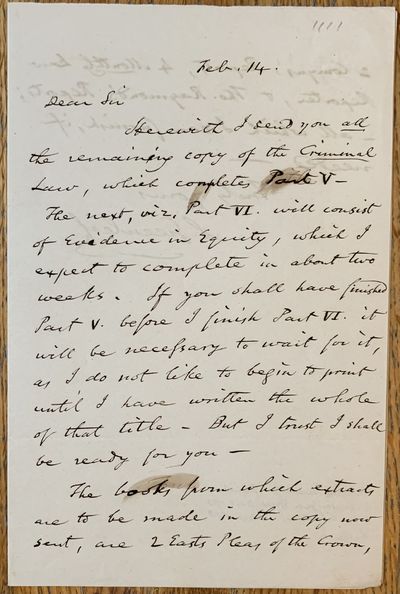 Feb. 14.
Dear Sir
Herewith I send you all
the remaining copy of the Criminal
Law, which completes Part V –
The next, viz. Part VI. will consist
of Evidence in Equity, which I
expect to complete in about two
weeks. If you shall have finished
Part V. before I finish Part VI. it
will be necessary to wait for it,
as I do not like to begin to print
until I have written the whole
of that title – But I trust I shall
be ready for you –
The books from which extracts
are to be made in the copy now
sent, are 2 Easts Pleas of the Crown,